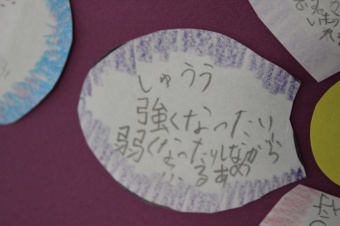 しゅうう
強くなったり
弱くなったりしながら
ふるあめ